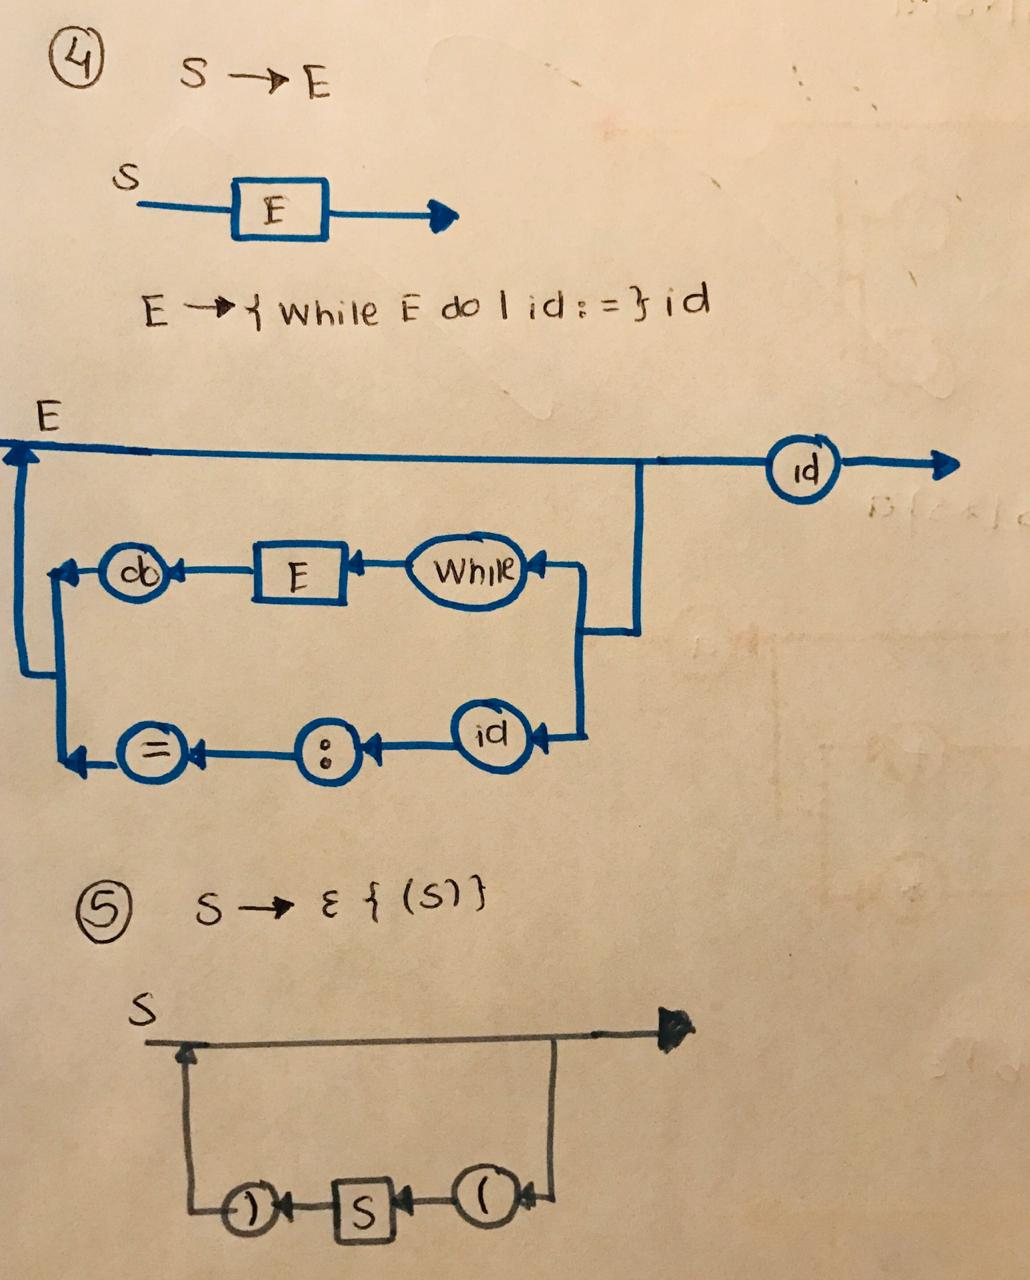 4 S → E
S
E
E → { While E do | id : = } id
E
id
do E While
= : id
5 S → ε { (S) }
S
) S (